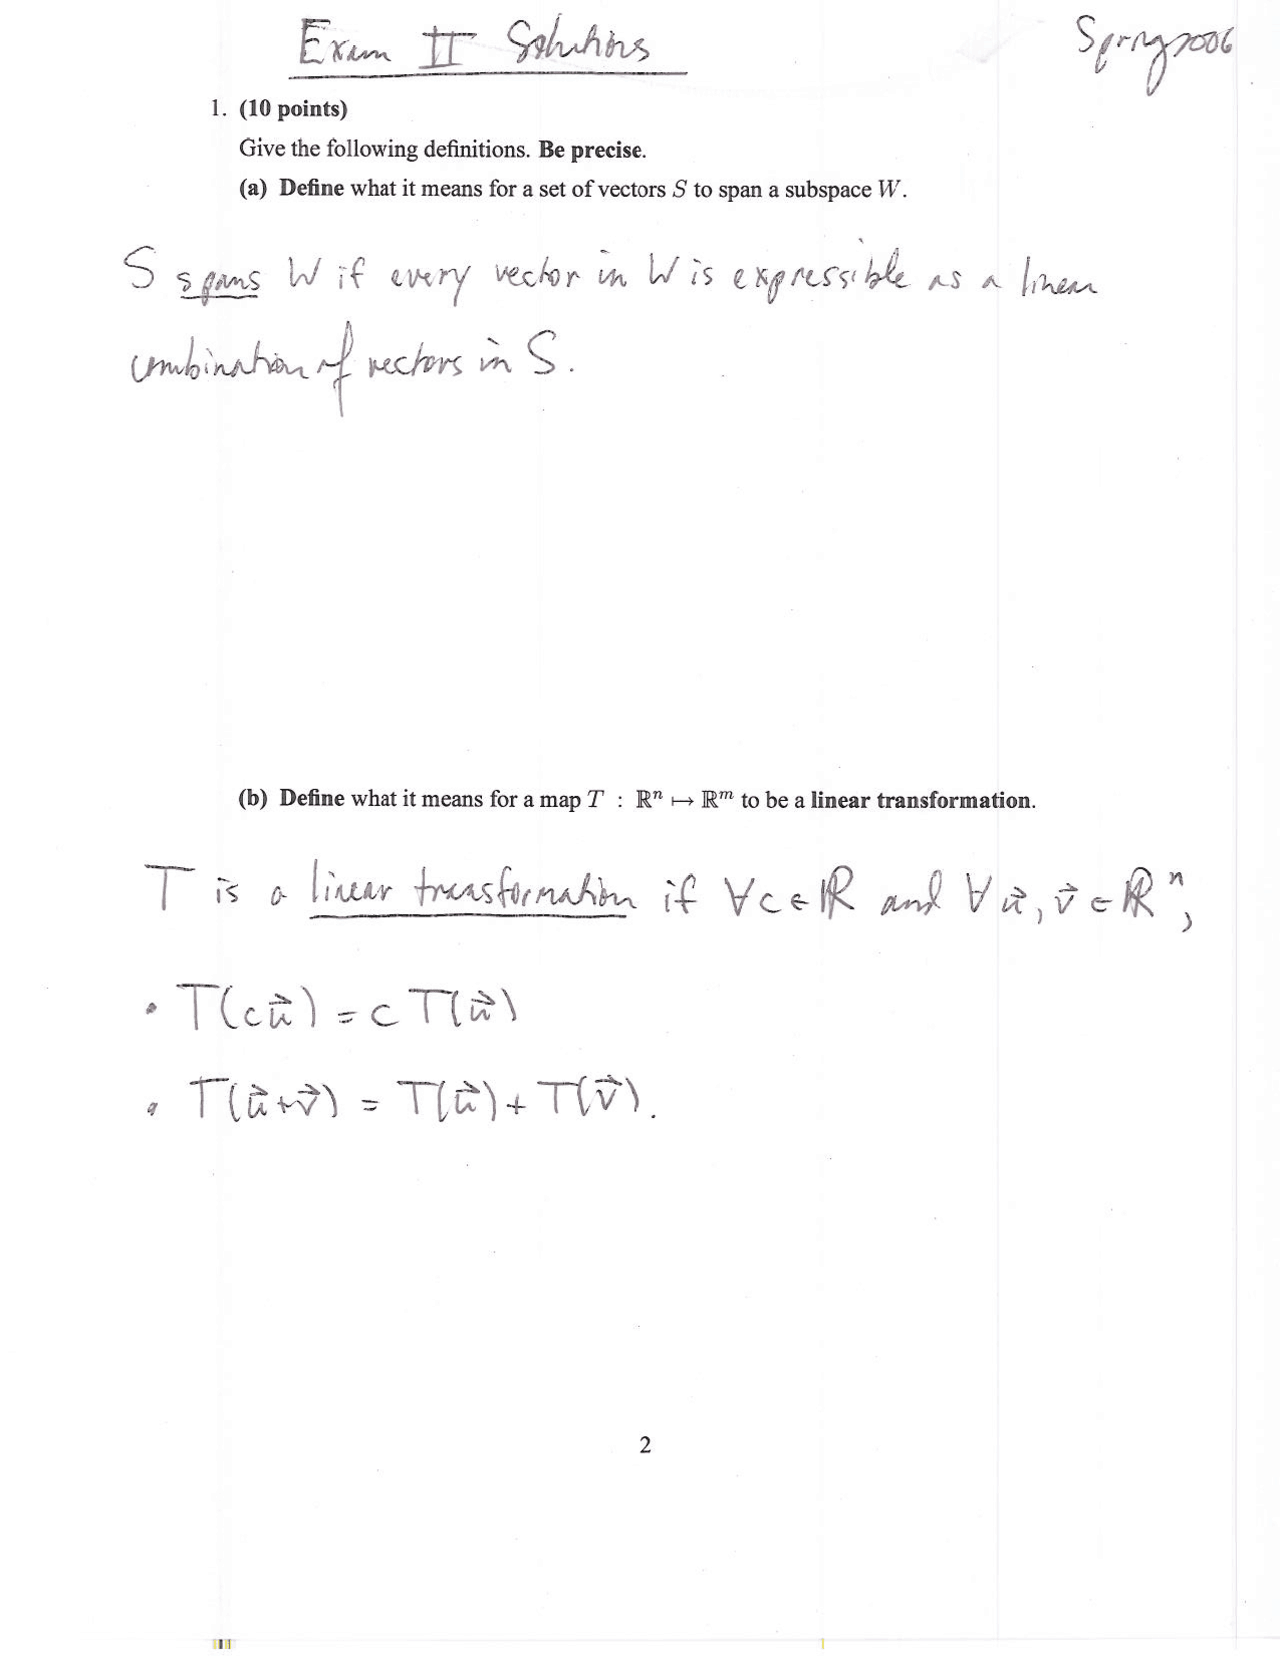 Exam II Solutions
Spring 2006
1. (10 points)
Give the following definitions. Be precise.
(a) Define what it means for a set of vectors S to span a subspace W.
S spans W if every vector in W is expressible as a linear
combination of vectors in S.
(b) Define what it means for a map T : ℝⁿ ↦ ℝᵐ to be a linear transformation.
T is a linear transformation if ∀c∈ℝ and ∀u⃗, v⃗ ∈ ℝⁿ,
• T(cu⃗) = cT(u⃗)
• T(u⃗+v⃗) = T(u⃗) + T(v⃗).
2